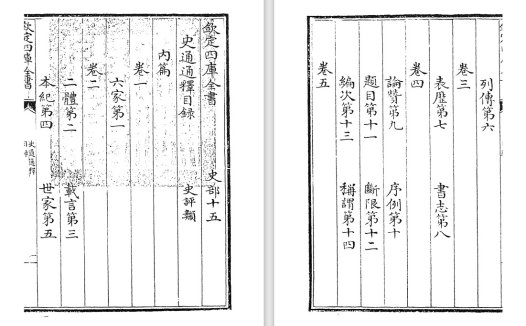 欽定四庫全書 史部十五
史通通釋目錄 史評類
内篇
卷一
六家第一
卷二
二體第二 載言第三
本紀第四 世家第五
欽定四庫全書
史通通釋
列傳第六
卷三
表歴第七 書志第八
卷四
論贊第九 序例第十
題目第十一 斷限第十二
編次第十三 稱謂第十四
卷五